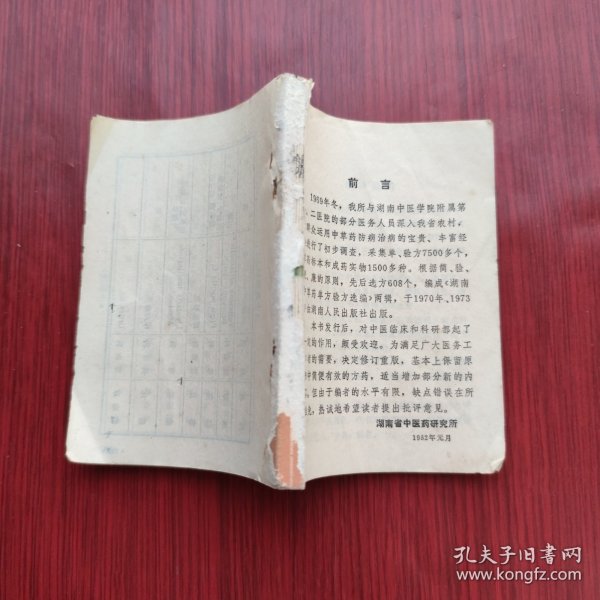 前 言
1969年冬，我所与湖南中医学院附属第
、二医院的部分医务人员深入我省农村，
群众运用中草药防病治病的宝贵、丰富经
进行了初步调查，采集单、验方7500多个，
药标本和成药实物1500多种。根据简、验、
、廉的原则，先后选方608个，编成《湖南
草药单方验方选编》两辑，于1970年、1973
由湖南人民出版社出版。
本书发行后，对中医临床和科研都起了
定的作用，颇受欢迎。为满足广大医务工
者的需要，决定修订重版，基本上保留原
中简便有效的方药，适当增加部分新的内
。但由于编者的水平有限，缺点错误在所
免，热诚地希望读者提出批评意见。
湖南省中医药研究所
1982年元月
孔夫子旧书网
www.kongfz.com